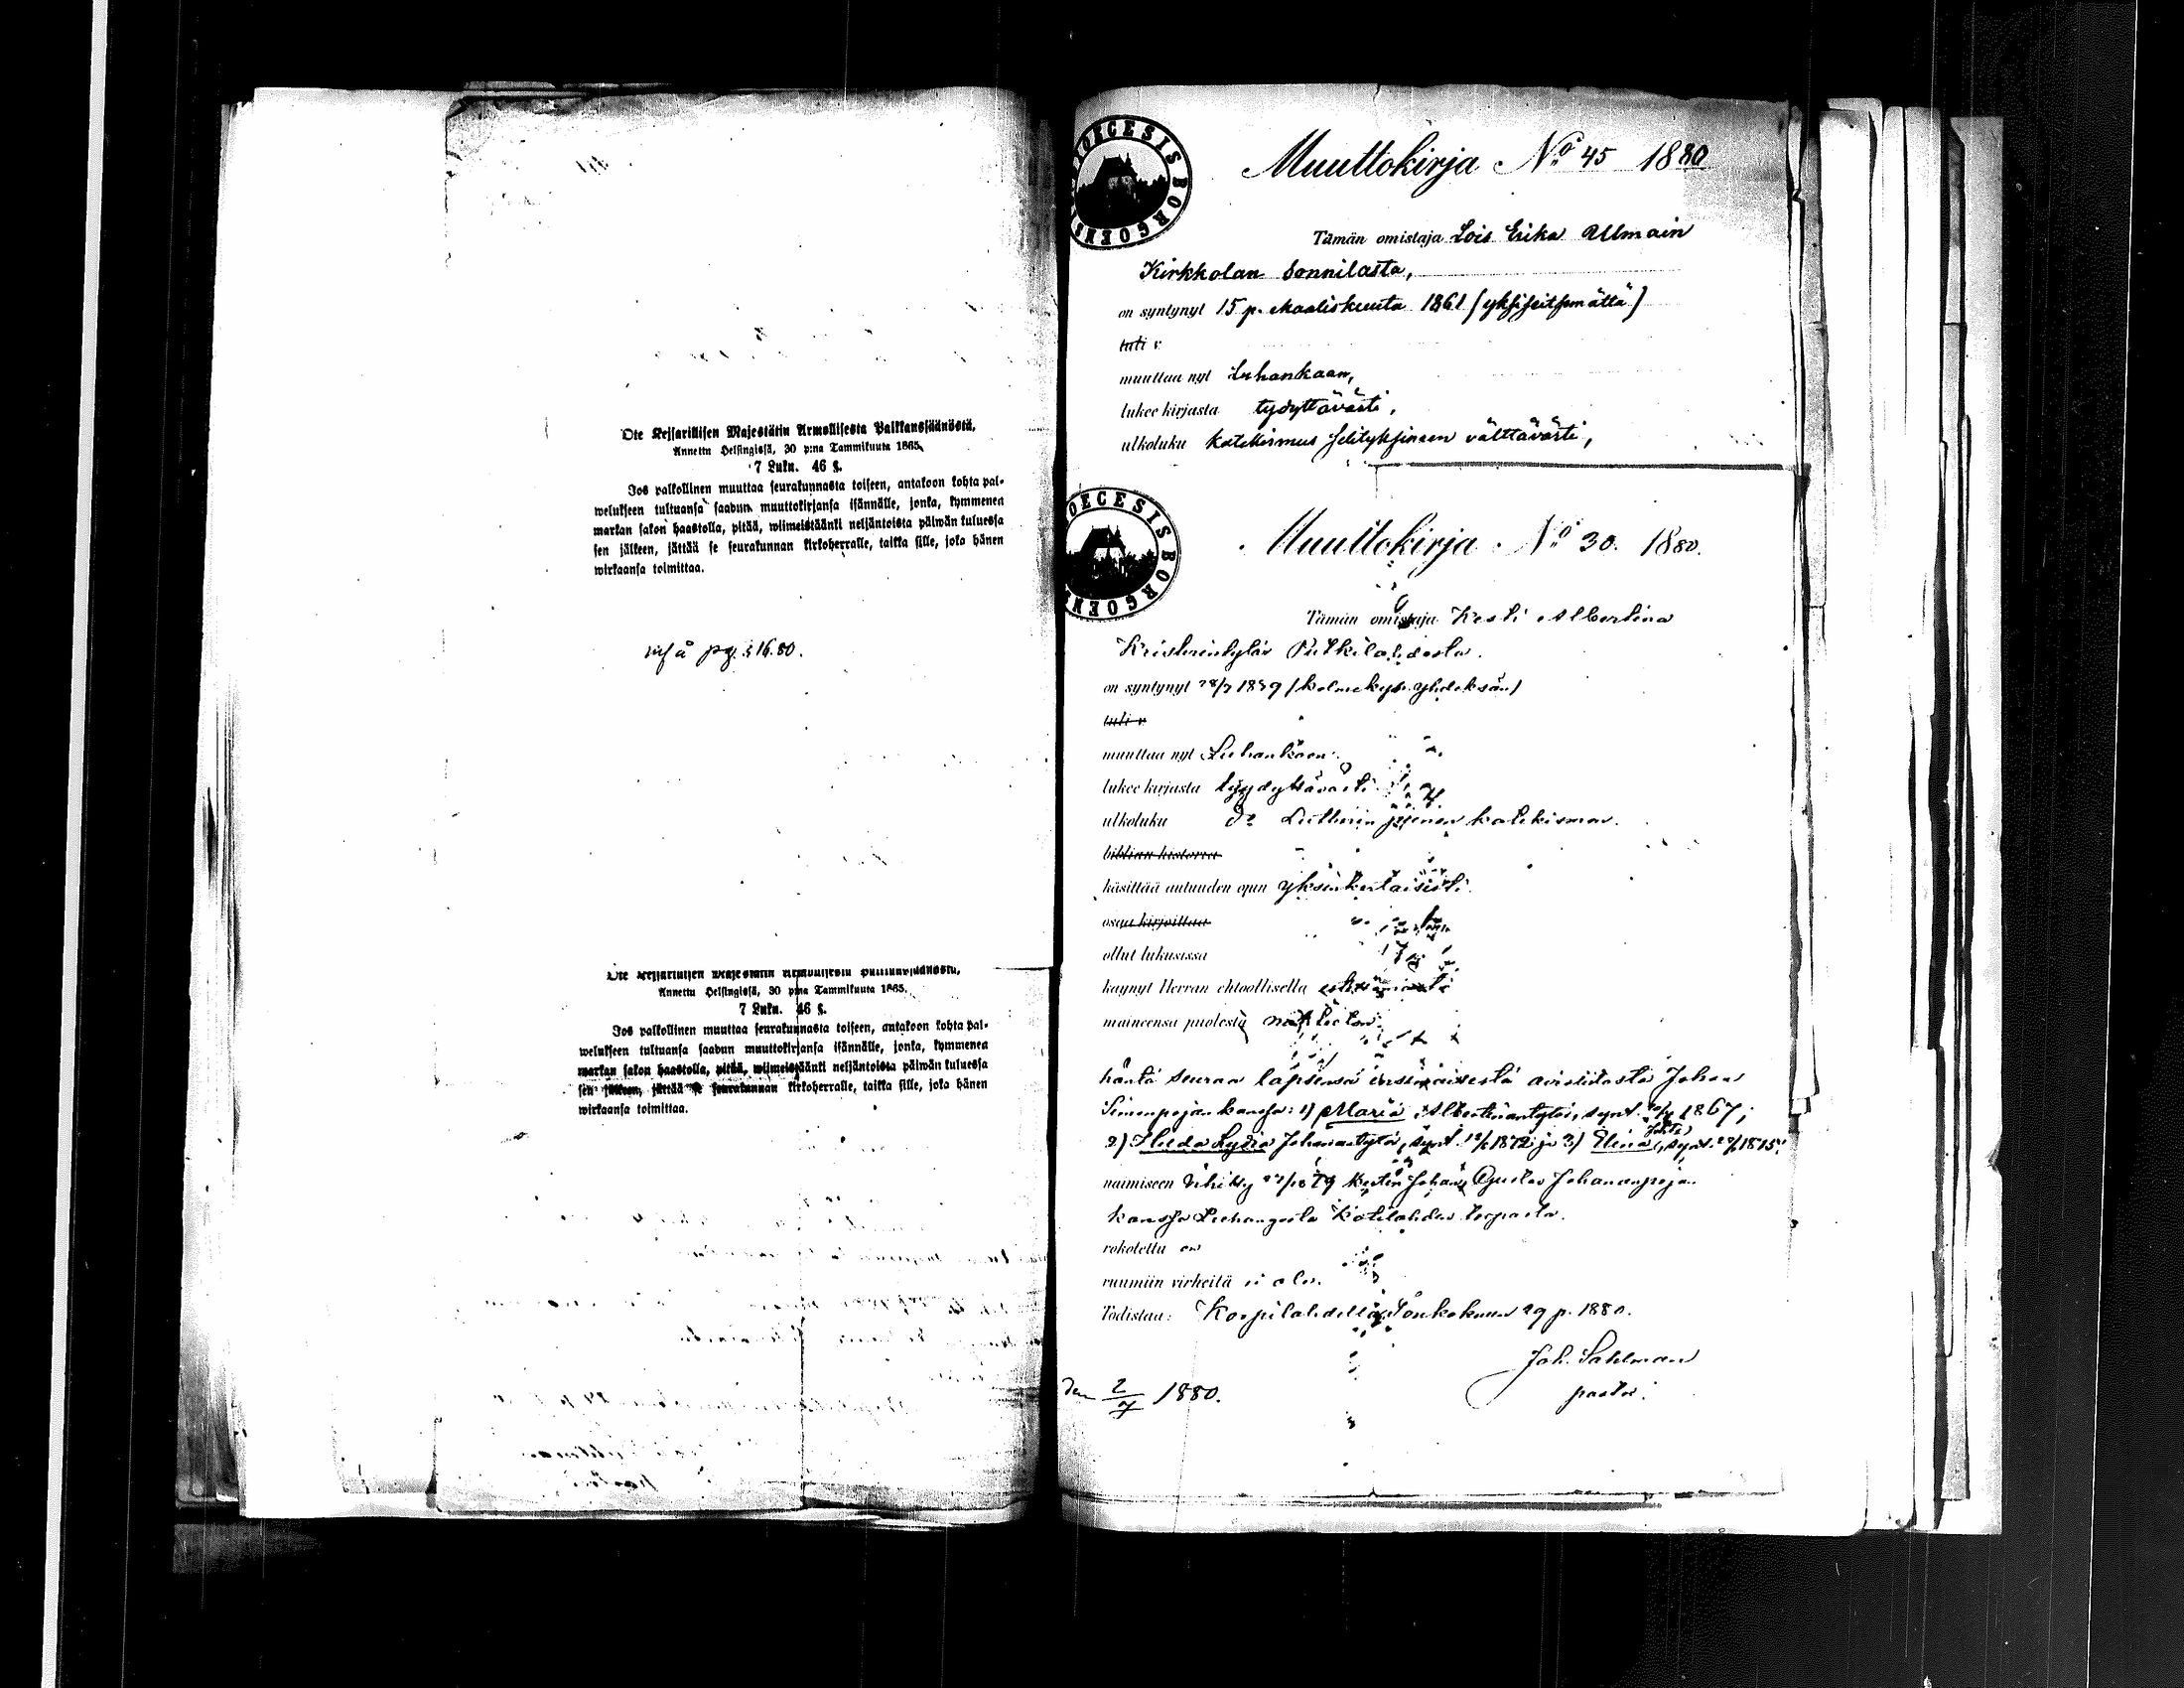 Ote Keisarillisen Majestätin Armollisesta Palkkaussäännöstä,
Annettu Helsingissä, 30 p:nä Tammikuuta 1865.
7 Luku. 46 §.
Jos palkollinen muuttaa seurakunnasta toiseen, antakoon kohta pal-
welukseen tultuansa saadun muuttokirjansa isännälle, jonka, kymmenen
markan sakon haastolla, pitää, wiimeistäänki neljäntoista päiwän kuluessa
sen jälkeen, jättää se seurakunnan kirkoherralle, taikka sille, joka hänen
wirkaansa toimittaa.
Ote Keisarillisen Majestätin Armollisesta Palkkaussäännöstä,
Annettu Helsingissä, 30 p:nä Tammikuuta 1865.
7 Luku. 46 §.
Jos palkollinen muuttaa seurakunnasta toiseen, antakoon kohta pal-
welukseen tultuansa saadun muuttokirjansa isännälle, jonka, kymmenen
markan sakon haastolla, pitää, wiimeistäänki neljäntoista päiwän kuluessa
sen jälkeen, jättää se seurakunnan kirkoherralle, taikka sille, joka hänen
wirkaansa toimittaa.
DIOECESIS BORGOENSIS
Muuttokirja No 45 1880
Tämän omistaja Lois Erika
Kirkkolan
on syntynyt 15 p. Maaliskuuta 1861
tuli v.
muuttaa nyt Luhankaan,
lukee kirjasta tydyttävästi,
ulkoluku katekismus selityksineen välttävästi,
DIOECESIS BORGOENSIS
Muuttokirja No 30. 1880.
Tämän omistaja Kesti Albertina
Putkilahdesta.
on syntynyt 1839 (kolmekym. yhdeksän)
tuli v
muuttaa nyt Luhankaan.
lukee kirjasta tyydyttävästi
ulkoluku do Lutherin pienen katekismon.
biblian historia
käsittää autuuden opin yksinkertaisesti.
osaa kirjoittaa
ollut lukusissa
käynyt Herran ehtoollisella
maineensa puolesta
häntä seuraa lapsensa ensimäisestä avioliitosta Johan
Simonpojan kanssa: 1) Maria Albertinantytär, synt. 1867;
2) Hilda Lydia Johanintytär, synt. 1872 ja 3) Elina synt. 1875.
naimiseen vihitty 79 Johan Gustav Johananpojan
kanssa Luhangosta Kotilahden torpasta.
rokotettu on
ruumiin virheitä ei ole.
Todistaa: Korpilahdella Toukokuun 29 p. 1880.
Joh. Sahlman
pastor.
den 2/7 1880.